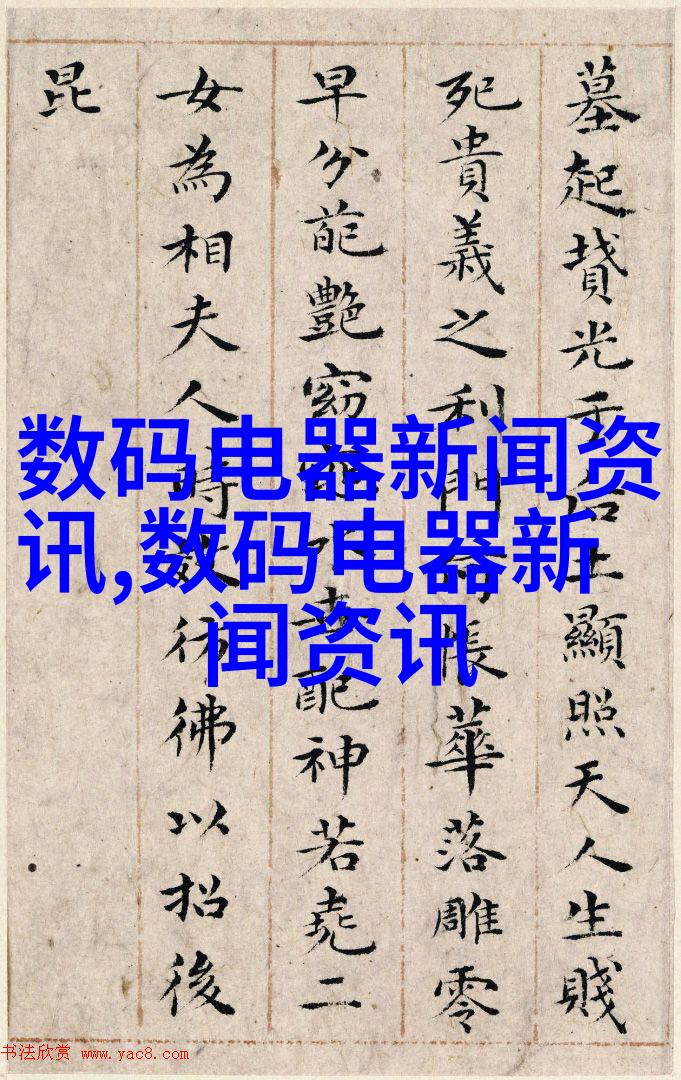 墓起墳光于后土顯照天人生賤
死貴義之利門何悵華落雕零
早分葩艷窈配神若堯二
女為相夫人時效彷彿以招後
昆
数码电器新闻资
讯,数码电器新
闻资讯
书法欣赏 www.yac8.com